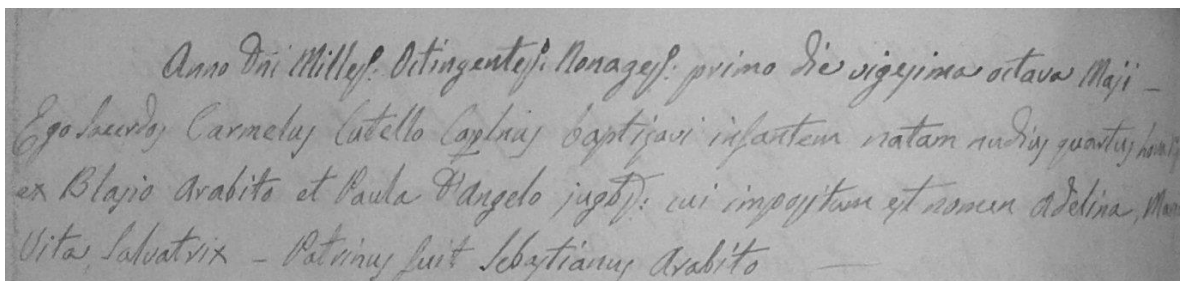 Anno Dñi Milles: Octingentes: Nonages: primo die vigesima octava Maji -
Ego Sacerdos Carmelus Cutello Caplnus baptizavi infantem natam nudius quartus
ex Blasio Arabito et Paula D'Angelo jugbs: cui impositum est nomen Adelina,
Vita, Salvatrix - Patrinus fuit Sebastianus Arabito —